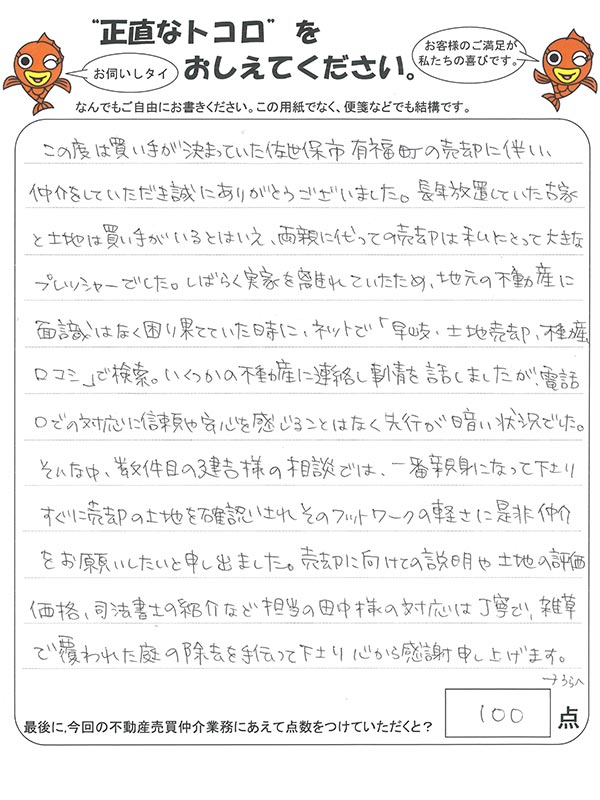 "正直なトコロ"を
おしえてください。
お伺いしタイ
お客様のご満足が
私たちの喜びです。
なんでもご自由にお書きください。この用紙でなく、便箋などでも結構です。
この度は買い手が決まっていた佐世保市 有福町の売却に伴い、
仲介をしていただき誠にありがとうございました。長年放置していた古家
と土地は買い手がいるとはいえ、両親に代っての売却は私にとって大きな
プレッシャーでした。しばらく実家を離れていたため、地元の不動産に
面識はなく困り果てていた時に、ネットで「早岐、土地売却、不動産
口コミ」で検索。いくつかの不動産に連絡し事情を話しましたが、電話
口での対応に信頼や安心を感じることはなく先行が暗い状況でした。
そんな中、数件目の建吉様の相談では、一番親身になって下さり
すぐに売却の土地を確認いされそのフットワークの軽さに是非仲介
をお願いしたいと申し出ました。売却に向けての説明や土地の評価
価格、司法書士の紹介など担当の田中様の対応は丁寧で、雑草
で覆われた庭の除去を手伝って下さり心から感謝申し上げます。
→うらへ
最後に、今回の不動産売買仲介業務にあえて点数をつけていただくと？ 100 点